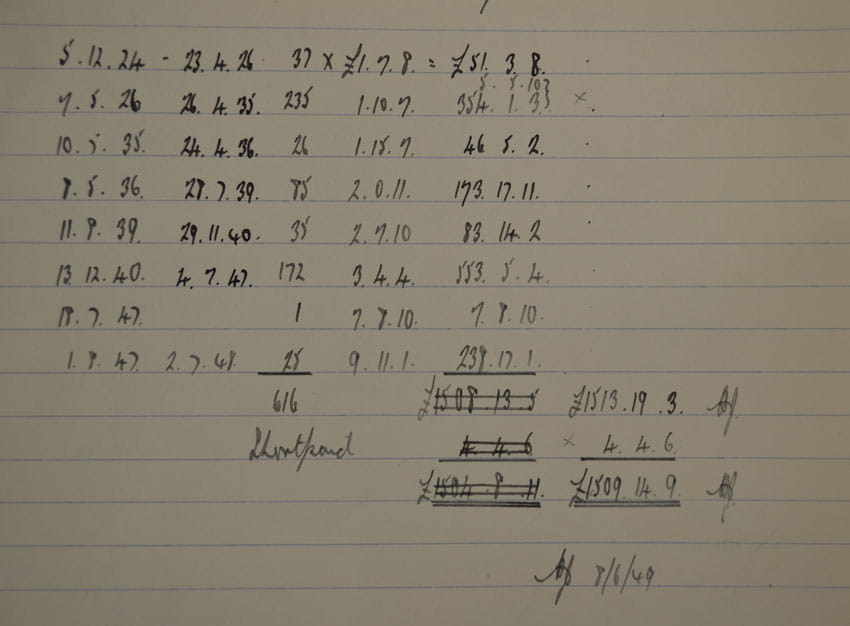 5. 12. 24 - 23. 4. 26 37 × £1. 7. 8. = £51. 3. 8.
5. 5. 10½
7. 5. 26 26. 4. 35. 235 1. 10. 7. 354. 1. 3½ ×
10. 5. 35. 24. 4. 36. 26 1. 15. 7. 46. 5. 2.
8. 5. 36. 28. 7. 39. 85 2. 0. 11. 173. 17. 11.
11. 8. 39. 29. 11. 40. 35 2. 7. 10 83. 14. 2
13. 12. 40. 4. 7. 47. 172 3. 4. 4. 553. 5. 4.
18. 7. 47. 1 7. 8. 10. 7. 8. 10.
1. 8. 47 2. 7. 48. 25 9. 11. 1. 238. 17. 1.
616 £1508. 13. 5 £1513. 19. 3.
Shortpaid 4. 4. 6 × 4. 4. 6.
£1504. 8. 11. £1509. 14. 9.
8/6/49